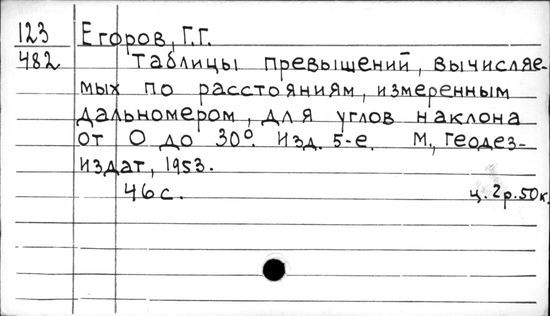 123 Егоров, Г.Г.
482 Таблицы превышений, вычисляе-
мых по расстояниям, измеренным
дальномером, для углов наклона
от 0 до 30°. Изд. 5-е. М., Геодез-
издат, 1953.
46 с. ц. 2р. 50к.